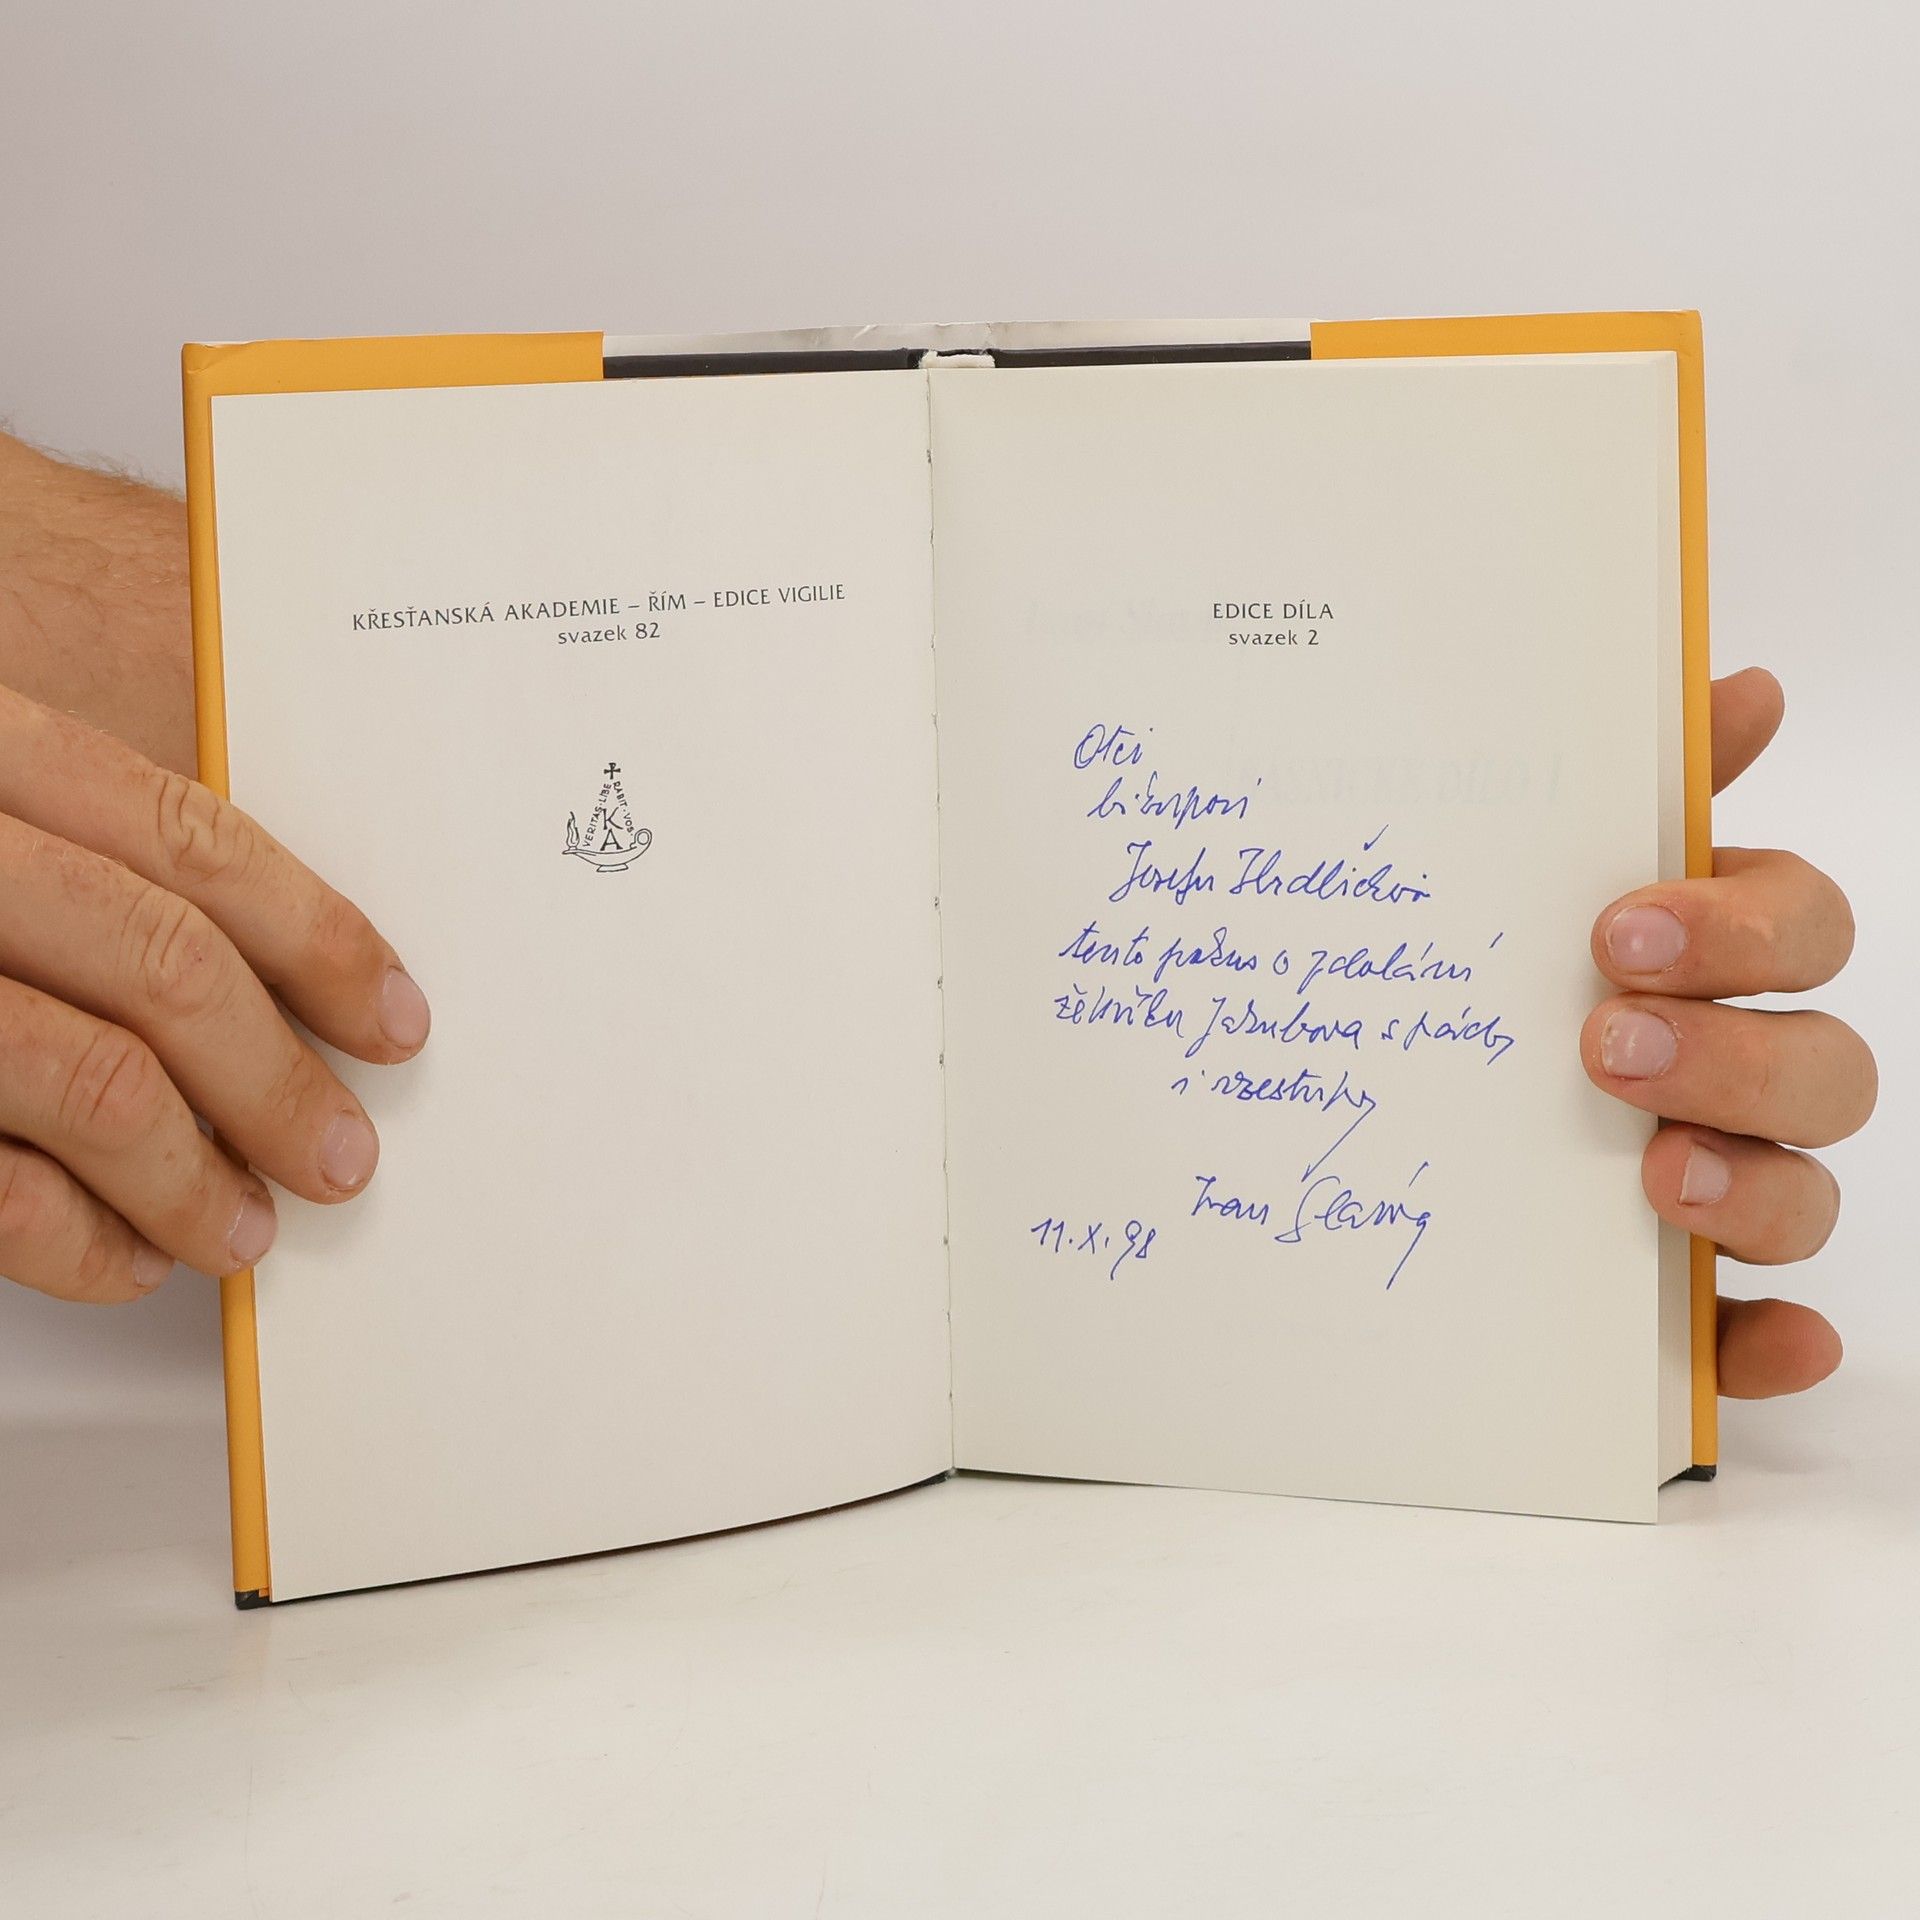 KŘESŤANSKÁ AKADEMIE – ŘÍM – EDICE VIGILIE
svazek 82
VERITAS · LIBERABIT · VOS ·
K
A
EDICE DÍLA
svazek 2
Otci
biskupovi
Josefu Hrdličkovi
tento pokus o zdolání
žebříku Jakubova s pády
i vzestupy
Ivan Slavík
11. X. 98